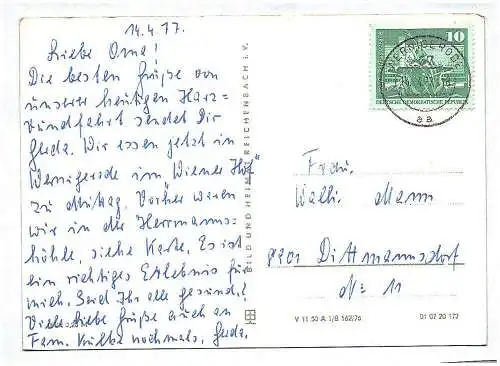 14.4.77.
Liebe Oma!
Die besten Grüße von
unserer heutigen Harz=
rundfahrt sendet Dir
Gerda. Wir essen jetzt in
Wernigerode im "Wiener Hof"
zu Mittag. Vorher waren
wir in der Herrmanns=
höhle, siehe Karte. Es ist
ein richtiges Erlebnis für
mich. Seid Ihr alle gesund?
Viele liebe Grüße auch an
Fam. nochmals, Gerda.
BILD UND HEIM REICHENBACH I. V.
10
DEUTSCHE DEMOKRATISCHE REPUBLIK
aa
Frau
Walli Mann
9201 Dittmannsdorf
Nr 11
V 11 50 A 1/B 162/76
01 07 20 177